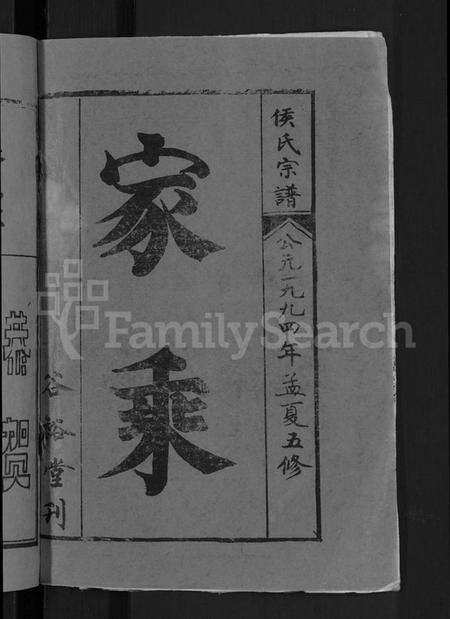 侯氏宗譜
公元一九九四年孟夏五修
家乘
谷裕堂刊
賀
FamilySearch